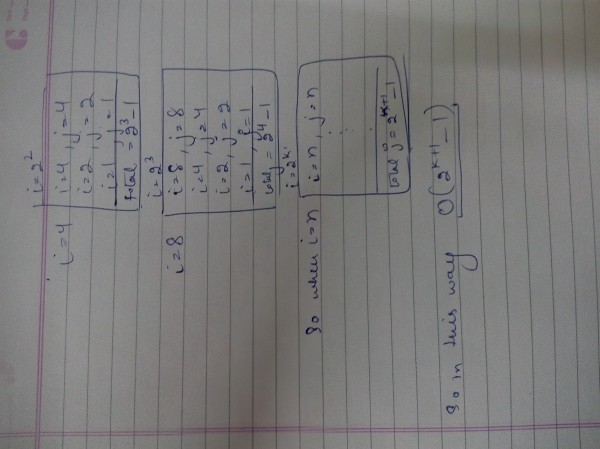 i=2²
i=4
i=4, j=4
i=2, j=2
i=1, j=1
total = 2³-1
i=2³
i=8
i=8, j=8
i=4, j=4
i=2, j=2
i=1, j=1
total j = 2⁴-1
i=2ᵏ
so when i=n
i=n, j=n
total j = 2ᵏ⁺¹-1
so in this way O(2ᵏ⁺¹-1)